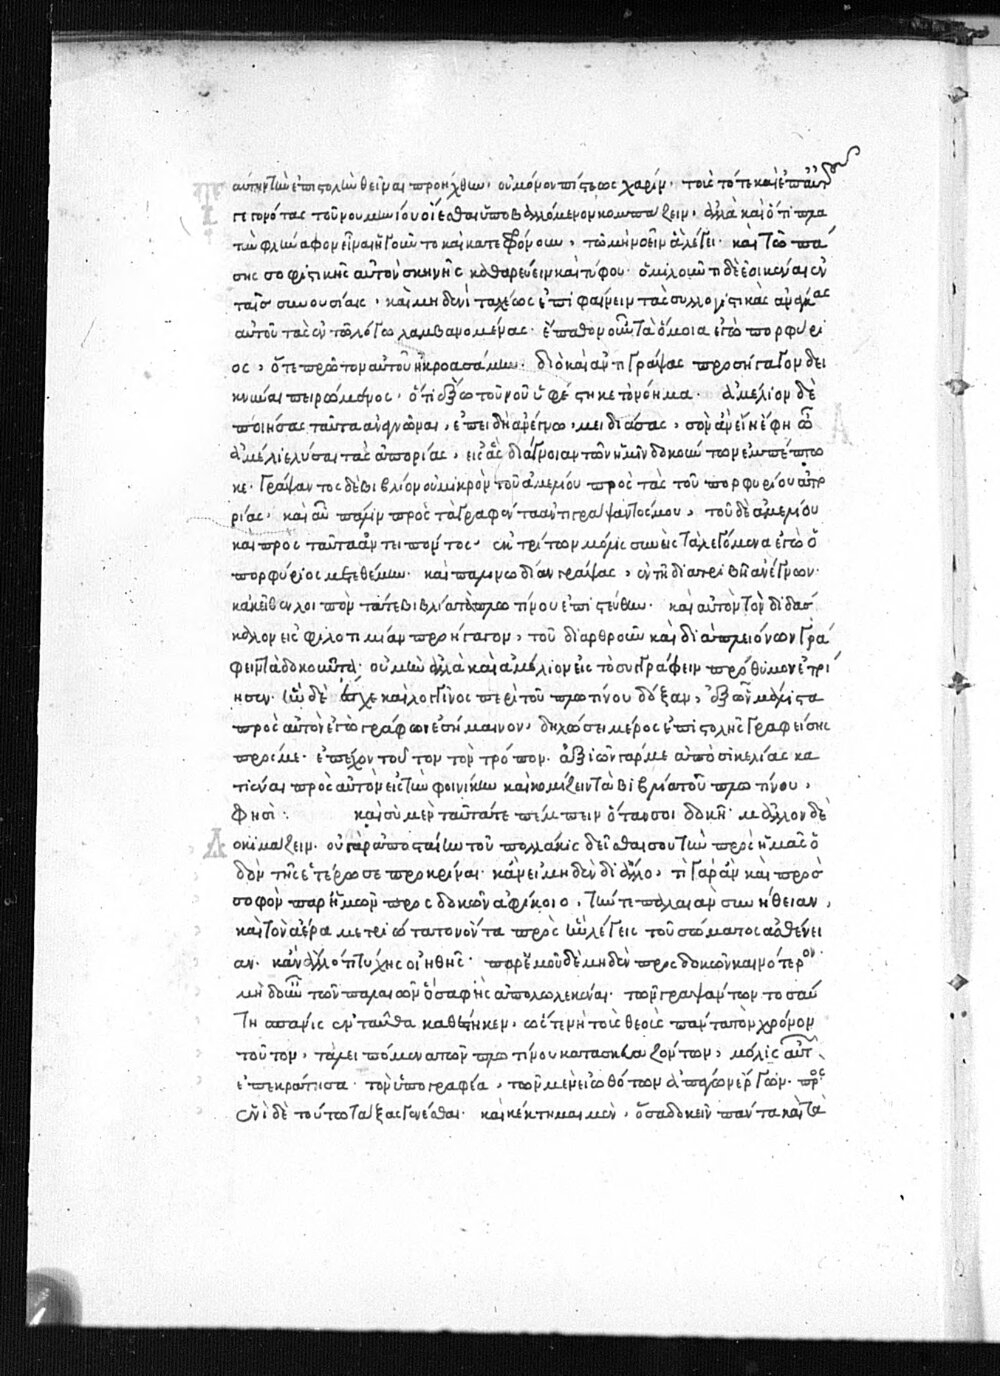 αὐτὴν τὴν ἐπιστολὴν θεῖναι προήχθην, οὐ μόνον πίστεως χάριν τοῖς τότε καὶ ἐπ' αὐτοῦ
γεγονότας τοῦ νουμηνίου οἴεσθαι ὑποβαλλόμενον κομπάζειν, ἀλλὰ καὶ ὅτι πλα
τὺν φλύαρον εἶναι ἡγοῦντο καὶ κατεφρόνουν, τῷ μὴ νοεῖν ἃ λέγει καὶ τῷ πά
σης σοφιστικῆς αὐτὸν σκηνῆς καθαρεύειν καὶ τύφου· ὁμιλοῦντι δὲ ἐοικέναι ἐν
ταῖς συνουσίαις, καὶ μηδενὶ ταχέως ἐπιφαίνειν τὰς συλλογιστικὰς ἀνάγκας
αὐτοῦ τὰς ἐν τῷ λόγῳ λαμβανομένας· ἔπαθον οὖν τὰ ὅμοια ἐγὼ πορφύρι
ος, ὅτε πρῶτον αὐτοῦ ἠκροασάμην. διὸ καὶ ἀντιγράψας προσήγαγον δει
κνύναι πειρώμενος, ὅτι ἔξω τοῦ νοῦ ὑφέστηκε τὸ νόημα. ἀμέλιον δὲ
ποιήσας ταῦτα ἀναγνῶναι, ἐπειδὴ ἀνέγνω, μειδιάσας, σὸν ἂν εἴη ἔφη ὦ
ἀμέλιε λῦσαι τὰς ἀπορίας, εἰς ἃς δι' ἄγνοιαν τῶν ἡμῖν δοκούντων ἐμπέπτω
κε· γράψαντος δὲ βιβλίον οὐ μικρὸν τοῦ ἀμελίου πρὸς τὰς τοῦ πορφυρίου ἀπο
ρίας, καὶ αὖ πάλιν πρὸς τὰ γραφέντα ἀντιγράψαντός μου, τοῦ δὲ ἀμελίου
καὶ πρὸς ταῦτα ἀντειπόντος· ἐκ τρίτων μόλις συνεὶς τὰ λεγόμενα ἐγὼ ὁ
πορφύριος μετεθέμην καὶ παλινῳδίαν γράψας, ἐν τῇ διατριβῇ ἀνέγνων·
κἀκεῖθεν λοιπὸν τά τε βιβλία τὰ πλωτίνου ἐπιστεύθην· καὶ αὐτὸν τὸν διδάσ
καλον εἰς φιλοτιμίαν προήγαγον, τοῦ διαρθροῦν καὶ διὰ πλειόνων γρά
φειν τὰ δοκοῦντα. οὐ μὴν ἀλλὰ καὶ ἀμέλιον εἰς τὸ συγγράφειν πρόθυμον ἐποί
ησεν. ἣν δὲ ἔσχε καὶ λογγῖνος περὶ τοῦ πλωτίνου δόξαν, ἐξ ὧν μάλιστα
πρὸς αὐτὸν ἐγὼ γράφων ἐσήμαινον, δηλώσει μέρος ἐπιστολῆς γραφείσης
πρός με· ἐπέχον τοῦτον τὸν τρόπον. ἀξιῶν γάρ με ἀπὸ σικελίας κα
τιέναι πρὸς αὐτὸν εἰς τὴν φοινίκην καὶ κομίζειν τὰ βιβλία τοῦ πλωτίνου,
φησί: καὶ σὺ μὲν ταῦτά τε πέμπειν ὅταν σοι δοκῇ· μᾶλλον δὲ
κομίζειν. οὐ γὰρ ἀποσταίην τοῦ πολλάκις δεῖσθαί σου τὴν πρὸς ἡμᾶς ὁ
δὸν τῆς ἑτέρωσε προκρῖναι· κἂν εἰ μηδὲν δι' ἄλλο, τί γὰρ ἂν καὶ πρὸς
σοφὸν παρ' ἡμῶν προσδοκῶν ἀφίκοιο, τήν τε παλαιὰν συνήθειαν,
καὶ τὸν ἀέρα μετριώτατον ὄντα πρὸς ἣν λέγεις τοῦ σώματος ἀσθένει
αν. κἂν ἄλλο τι τύχῃς οἰηθῆς· παρ' ἐμοῦ δὲ μηδὲν προσδοκῶν καινότερον
μηδ' οὖν τῶν παλαιῶν ὅσα φῂς ἀπολωλεκέναι· τῶν γραψάντων τοσαύ
τη σπάνις ἐνταῦθα καθέστηκεν, ὥστε νὴ τοὺς θεοὺς πάντα τὸν χρόνον
τοῦτον, τὰ λειπόμενα τῶν πλωτίνου κατασκευάζων, μόλις αὐτῶν
ἐπεκράτησα τὸν ὑπογραφέα, τῶν μὲν εἰωθότων ἀπάγων ἔργων· πρὸς
ἑνὶ δὲ τούτῳ τάξας γενέσθαι. καὶ κέκτημαι μὲν, ὅσα δοκεῖν πάντα καὶ τὰ